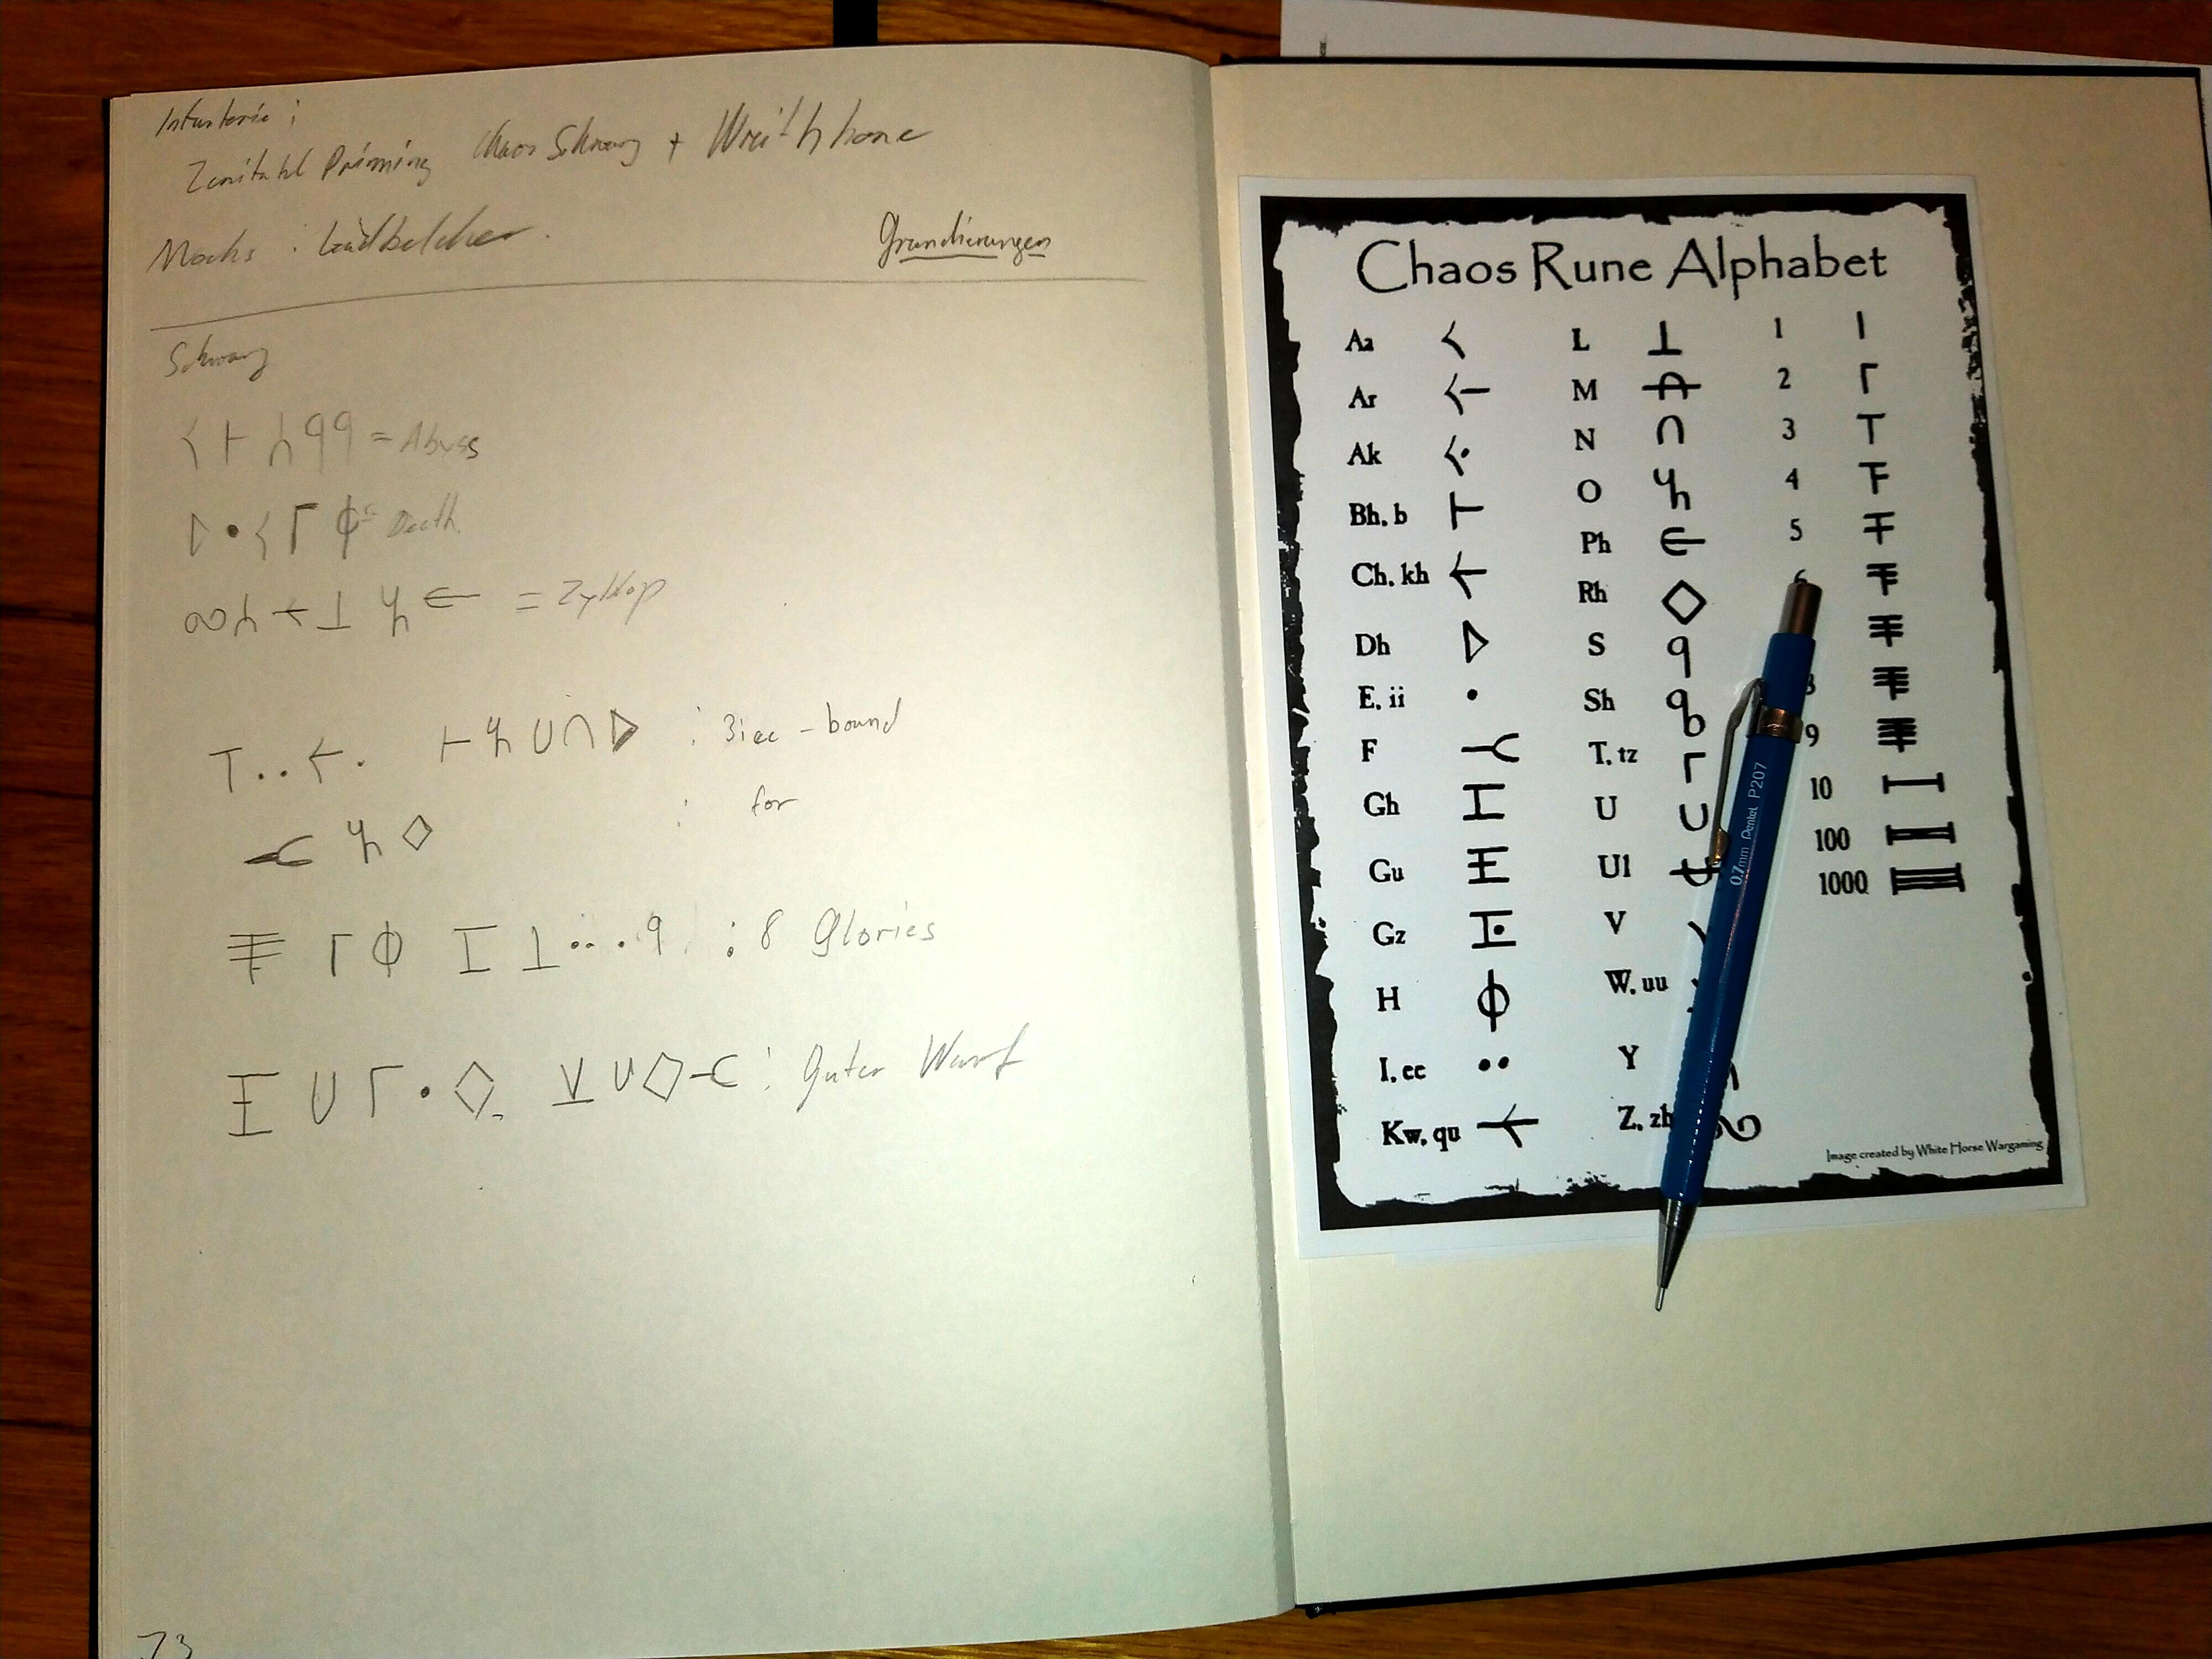 Infanterie :
Zenitahl Priming Chaos Schwarz + Wraithbone
Mechs : Leadbelcher.
Grundierungen
Schwarz
= Abyss
= Death
= Zyklop
: 3iee - bound
: for
: 8 Glories
: Guter Wurf
73
Chaos Rune Alphabet
Aa
Ar
Ak
Bh, b
Ch, kh
Dh
E, ii
F
Gh
Gu
Gz
H
I, ee
Kw, qu
L
M
N
O
Ph
Rh
S
Sh
T, tz
U
Ul
V
W, uu
Y
Z, zh
1
2
3
4
5
9
10
100
1000
Image created by White Horse Wargaming
0.7mm Pentel P207